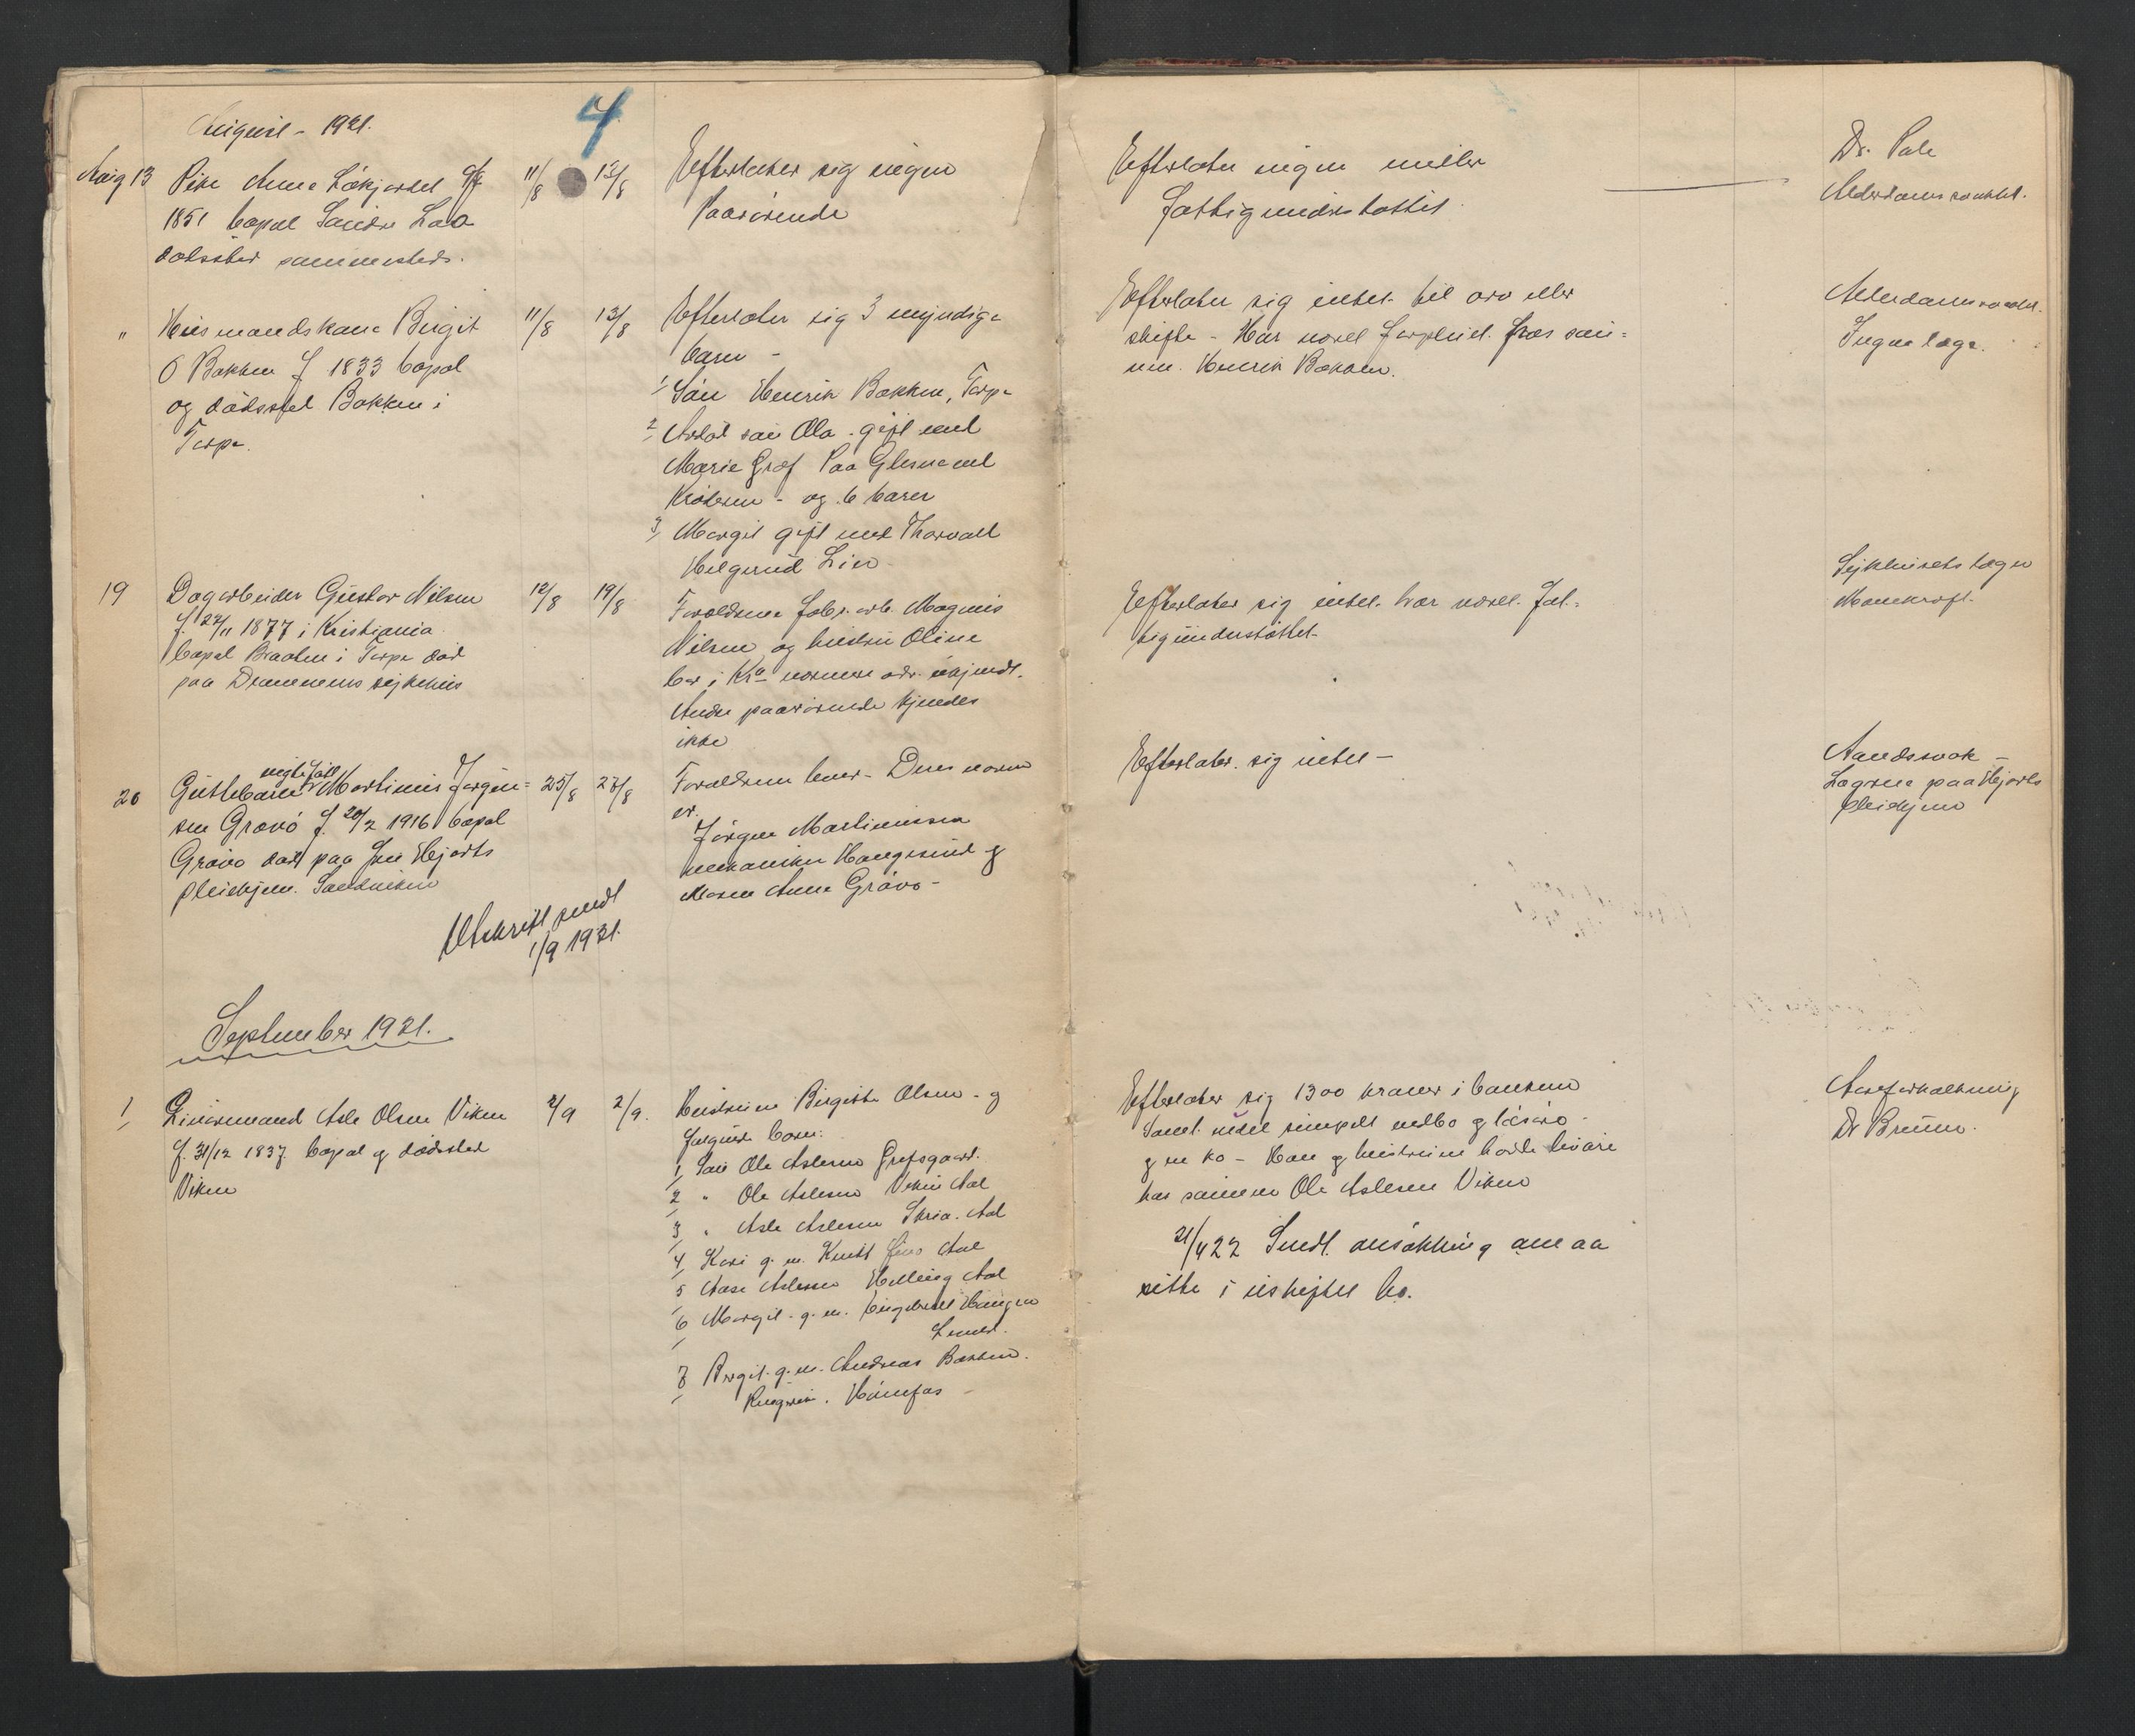 4
August - 1921.
Aug 13 Pike Anne Løkjordet f
1851 bopæl Søndre Lao
dødssted sammesteds.
11/8 13/8
Efterlater sig ingen
Paarørende
Efterlater ingen midler
Fattigunderstøttet.
Dr. Pale
Alderdomssvakhet.
" Husmandskone Birgit
O Bakken f 1833 bopæl
og dødssted Bakken i
Torpe.
11/8 13/8
Efterlater sig 3 myndige
barn -
1/ Søn Henrik Bakken, Torpe
2/ Avdød søn Ola . gift med
Marie Græf Paa Glesne ved
Krøderen - og 6 barn
3/ Margit gift med Thorvald
Helgerud Lier
Efterlater sig intet til arv eller
skifte - Har været forpleiet hos søn=
nen. Henrik Bakken.
Alderdomssvakhet.
Ingen læge.
19 Dagarbeider Gustav Nilsen
f. 24/11 1877 i Kristiania
bopæl Braaten i Torpe død
paa Drammens sykehus
12/8 19/8
Forældrene fabr. arb. Magnus
Nilsen og hustru Oline
bor i Kra nærmere adr. ukjendt.
Andre paarørende kjendes
ikke
Efterlater sig intet. var været Fat=
tigunderstøttet
Sykehusets læge
Mavekræft.
20 Guttebarn Martinus Jørgen=
sen Grøvo f. 20/2 1916 bopæl
Grøvo død paa Fru Hjorts
pleiehjem. Sandviken
25/8 27/8
Forældrene lever - Deres navn
er.
Jørgen Martinussen
mekaniker Haugesund og
Moren Anne Grøvo -
Efterlater sig intet -
Aandssvak -
Lægen paa Hjorts
pleiehjem
Utskrift sendt
1/9 1921.
September 1921.
1/ Livøremand Asle Olsen Viken
f. 31/12 1837 bopæl og dødssted
Viken
2/9 2/9.
Hustruen Birgitte Olsen - og
følgende barn:
1/ Søn Ole Aslesen Grefsgaard.
2/ " Ole Aslesen Viken Aal
3/ " Asle Aslesen Skria. Aal
4/ Kari g. m. Knut Aal
5/ Aase Aslesen Helling Aal
6/ Margit - g. m. Engebret Haugen
Lunder.
7/ Birgit. g. m. Andreas Bakken.
Ringerike. Hønefos -
Efterlater sig 1300 kroner i banken
Samt. endel simpelt indbo og løsøre -
og en ko - Han og hustruen hadde livøre
hos sønnen Ole Aslesen Viken
21/4 22 Sendt. ansøkning om aa
sitte i uskiftet bo.
Aareforkalkning
Dr Bruun.